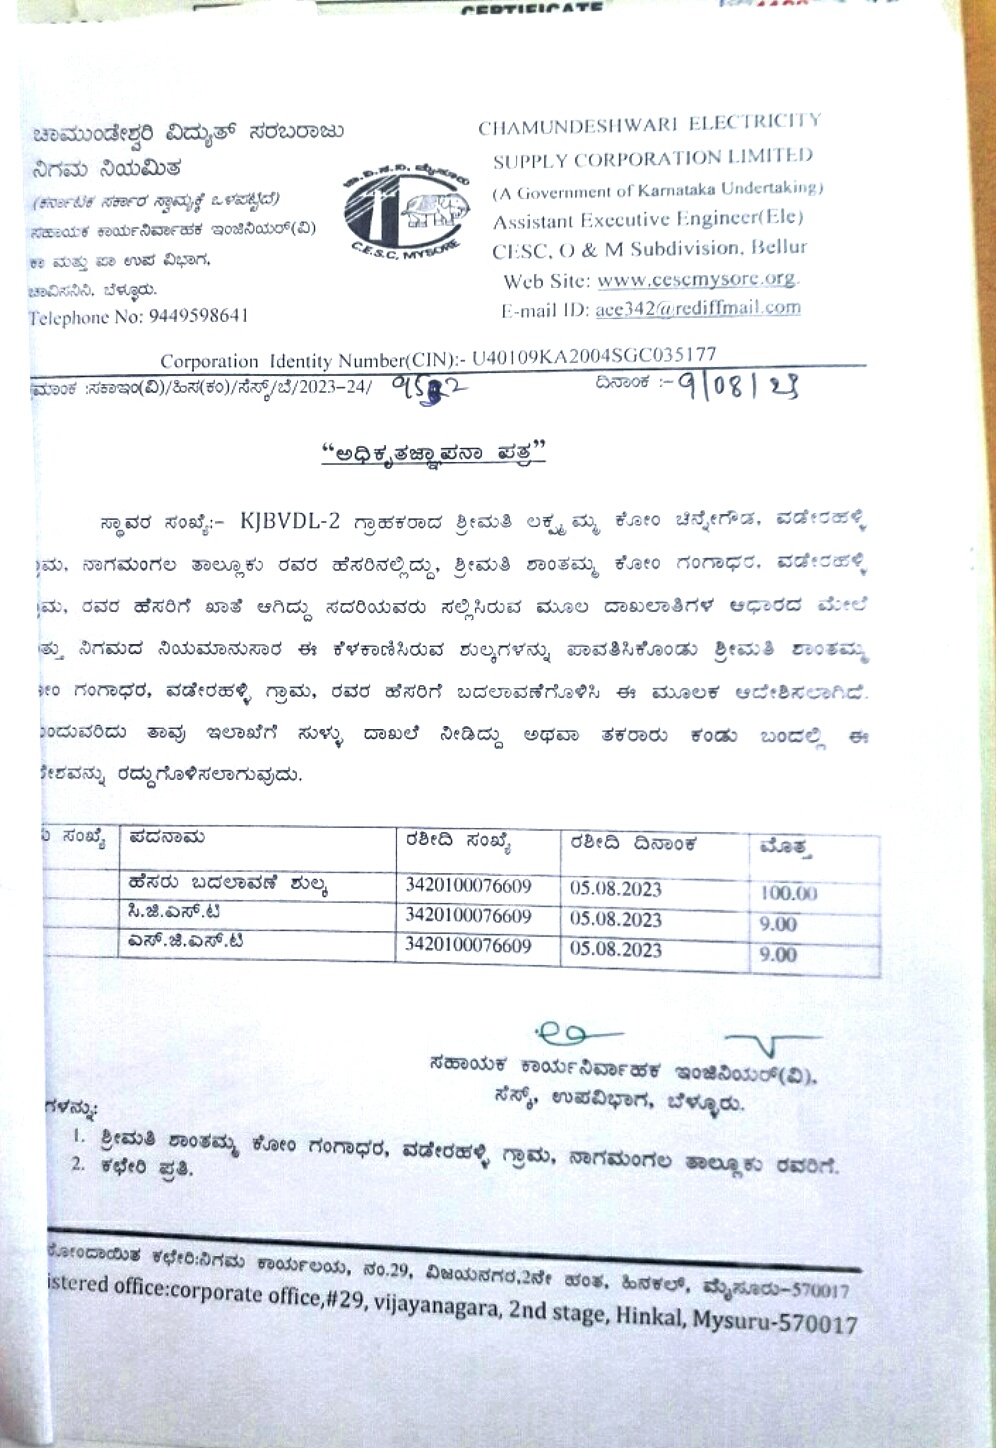 CERTIFICATE
ಚಾಮುಂಡೇಶ್ವರಿ ವಿದ್ಯುತ್ ಸರಬರಾಜು
ನಿಗಮ ನಿಯಮಿತ
(ಕರ್ನಾಟಕ ಸರ್ಕಾರ ಸ್ವಾಮ್ಯಕ್ಕೆ ಒಳಪಟ್ಟಿದೆ)
ಸಹಾಯಕ ಕಾರ್ಯನಿರ್ವಾಹಕ ಇಂಜಿನಿಯರ್(ವಿ)
ಕಾ ಮತ್ತು ಪಾ ಉಪ ವಿಭಾಗ,
ಚಾವಿಸನಿನಿ, ಬೆಳ್ಳೂರು.
Telephone No: 9449598641
ಚಾ.ವಿ.ಸ.ನಿ. ಮೈಸೂರು
C.E.S.C, MYSORE
CHAMUNDESHWARI ELECTRICITY
SUPPLY CORPORATION LIMITED
(A Government of Karnataka Undertaking)
Assistant Executive Engineer(Ele)
CESC, O & M Subdivision, Bellur
Web Site: www.cescmysore.org.
E-mail ID: aee342@rediffmail.com
Corporation Identity Number(CIN):- U40109KA2004SGC035177
ಮಾಂಕ :ಸಕಾಇಂ(ವಿ)/ಹಿಸ(ಕಂ)/ಸೆಸ್ಕ್/ಬೆ/2023-24/ ದಿನಾಂಕ :- 9/08/23
“ಅಧಿಕೃತಜ್ಞಾಪನಾ ಪತ್ರ”
ಸ್ಥಾವರ ಸಂಖ್ಯೆ:- KJBVDL-2 ಗ್ರಾಹಕರಾದ ಶ್ರೀಮತಿ ಲಕ್ಷ್ಮಮ್ಮ ಕೋಂ ಚೆನ್ನೇಗೌಡ, ವಡೇರಹಳ್ಳಿ
ಮ, ನಾಗಮಂಗಲ ತಾಲ್ಲೂಕು ರವರ ಹೆಸರಿನಲ್ಲಿದ್ದು, ಶ್ರೀಮತಿ ಶಾಂತಮ್ಮ ಕೋಂ ಗಂಗಾಧರ, ವಡೇರಹಳ್ಳಿ
ಮ, ರವರ ಹೆಸರಿಗೆ ಖಾತೆ ಆಗಿದ್ದು ಸದರಿಯವರು ಸಲ್ಲಿಸಿರುವ ಮೂಲ ದಾಖಲಾತಿಗಳ ಆಧಾರದ ಮೇಲೆ
ತ್ತು ನಿಗಮದ ನಿಯಮಾನುಸಾರ ಈ ಕೆಳಕಾಣಿಸಿರುವ ಶುಲ್ಕಗಳನ್ನು ಪಾವತಿಸಿಕೊಂಡು ಶ್ರೀಮತಿ ಶಾಂತಮ್ಮ
ೋಂ ಗಂಗಾಧರ, ವಡೇರಹಳ್ಳಿ ಗ್ರಾಮ, ರವರ ಹೆಸರಿಗೆ ಬದಲಾವಣೆಗೊಳಿಸಿ ಈ ಮೂಲಕ ಆದೇಶಿಸಲಾಗಿದೆ.
ುಂದುವರಿದು ತಾವು ಇಲಾಖೆಗೆ ಸುಳ್ಳು ದಾಖಲೆ ನೀಡಿದ್ದು ಅಥವಾ ತಕರಾರು ಕಂಡು ಬಂದಲ್ಲಿ ಈ
ದೇಶವನ್ನು ರದ್ದುಗೊಳಿಸಲಾಗುವುದು.
ಸಂಖ್ಯೆ ಪದನಾಮ ರಶೀದಿ ಸಂಖ್ಯೆ ರಶೀದಿ ದಿನಾಂಕ ಮೊತ್ತ
ಹೆಸರು ಬದಲಾವಣೆ ಶುಲ್ಕ 3420100076609 05.08.2023 100.00
ಸಿ.ಜಿ.ಎಸ್.ಟಿ 3420100076609 05.08.2023 9.00
ಎಸ್.ಜಿ.ಎಸ್.ಟಿ 3420100076609 05.08.2023 9.00
ಸಹಾಯಕ ಕಾರ್ಯನಿರ್ವಾಹಕ ಇಂಜಿನಿಯರ್(ವಿ),
ಸೆಸ್ಕ್, ಉಪವಿಭಾಗ, ಬೆಳ್ಳೂರು.
ಗಳನ್ನು:
1. ಶ್ರೀಮತಿ ಶಾಂತಮ್ಮ ಕೋಂ ಗಂಗಾಧರ, ವಡೇರಹಳ್ಳಿ ಗ್ರಾಮ, ನಾಗಮಂಗಲ ತಾಲ್ಲೂಕು ರವರಿಗೆ.
2. ಕಛೇರಿ ಪ್ರತಿ.
ೋಂದಾಯಿತ ಕಛೇರಿ:ನಿಗಮ ಕಾರ್ಯಲಯ, ನಂ.29, ವಿಜಯನಗರ,2ನೇ ಹಂತ, ಹಿನಕಲ್, ಮೈಸೂರು-570017
istered office:corporate office,#29, vijayanagara, 2nd stage, Hinkal, Mysuru-570017